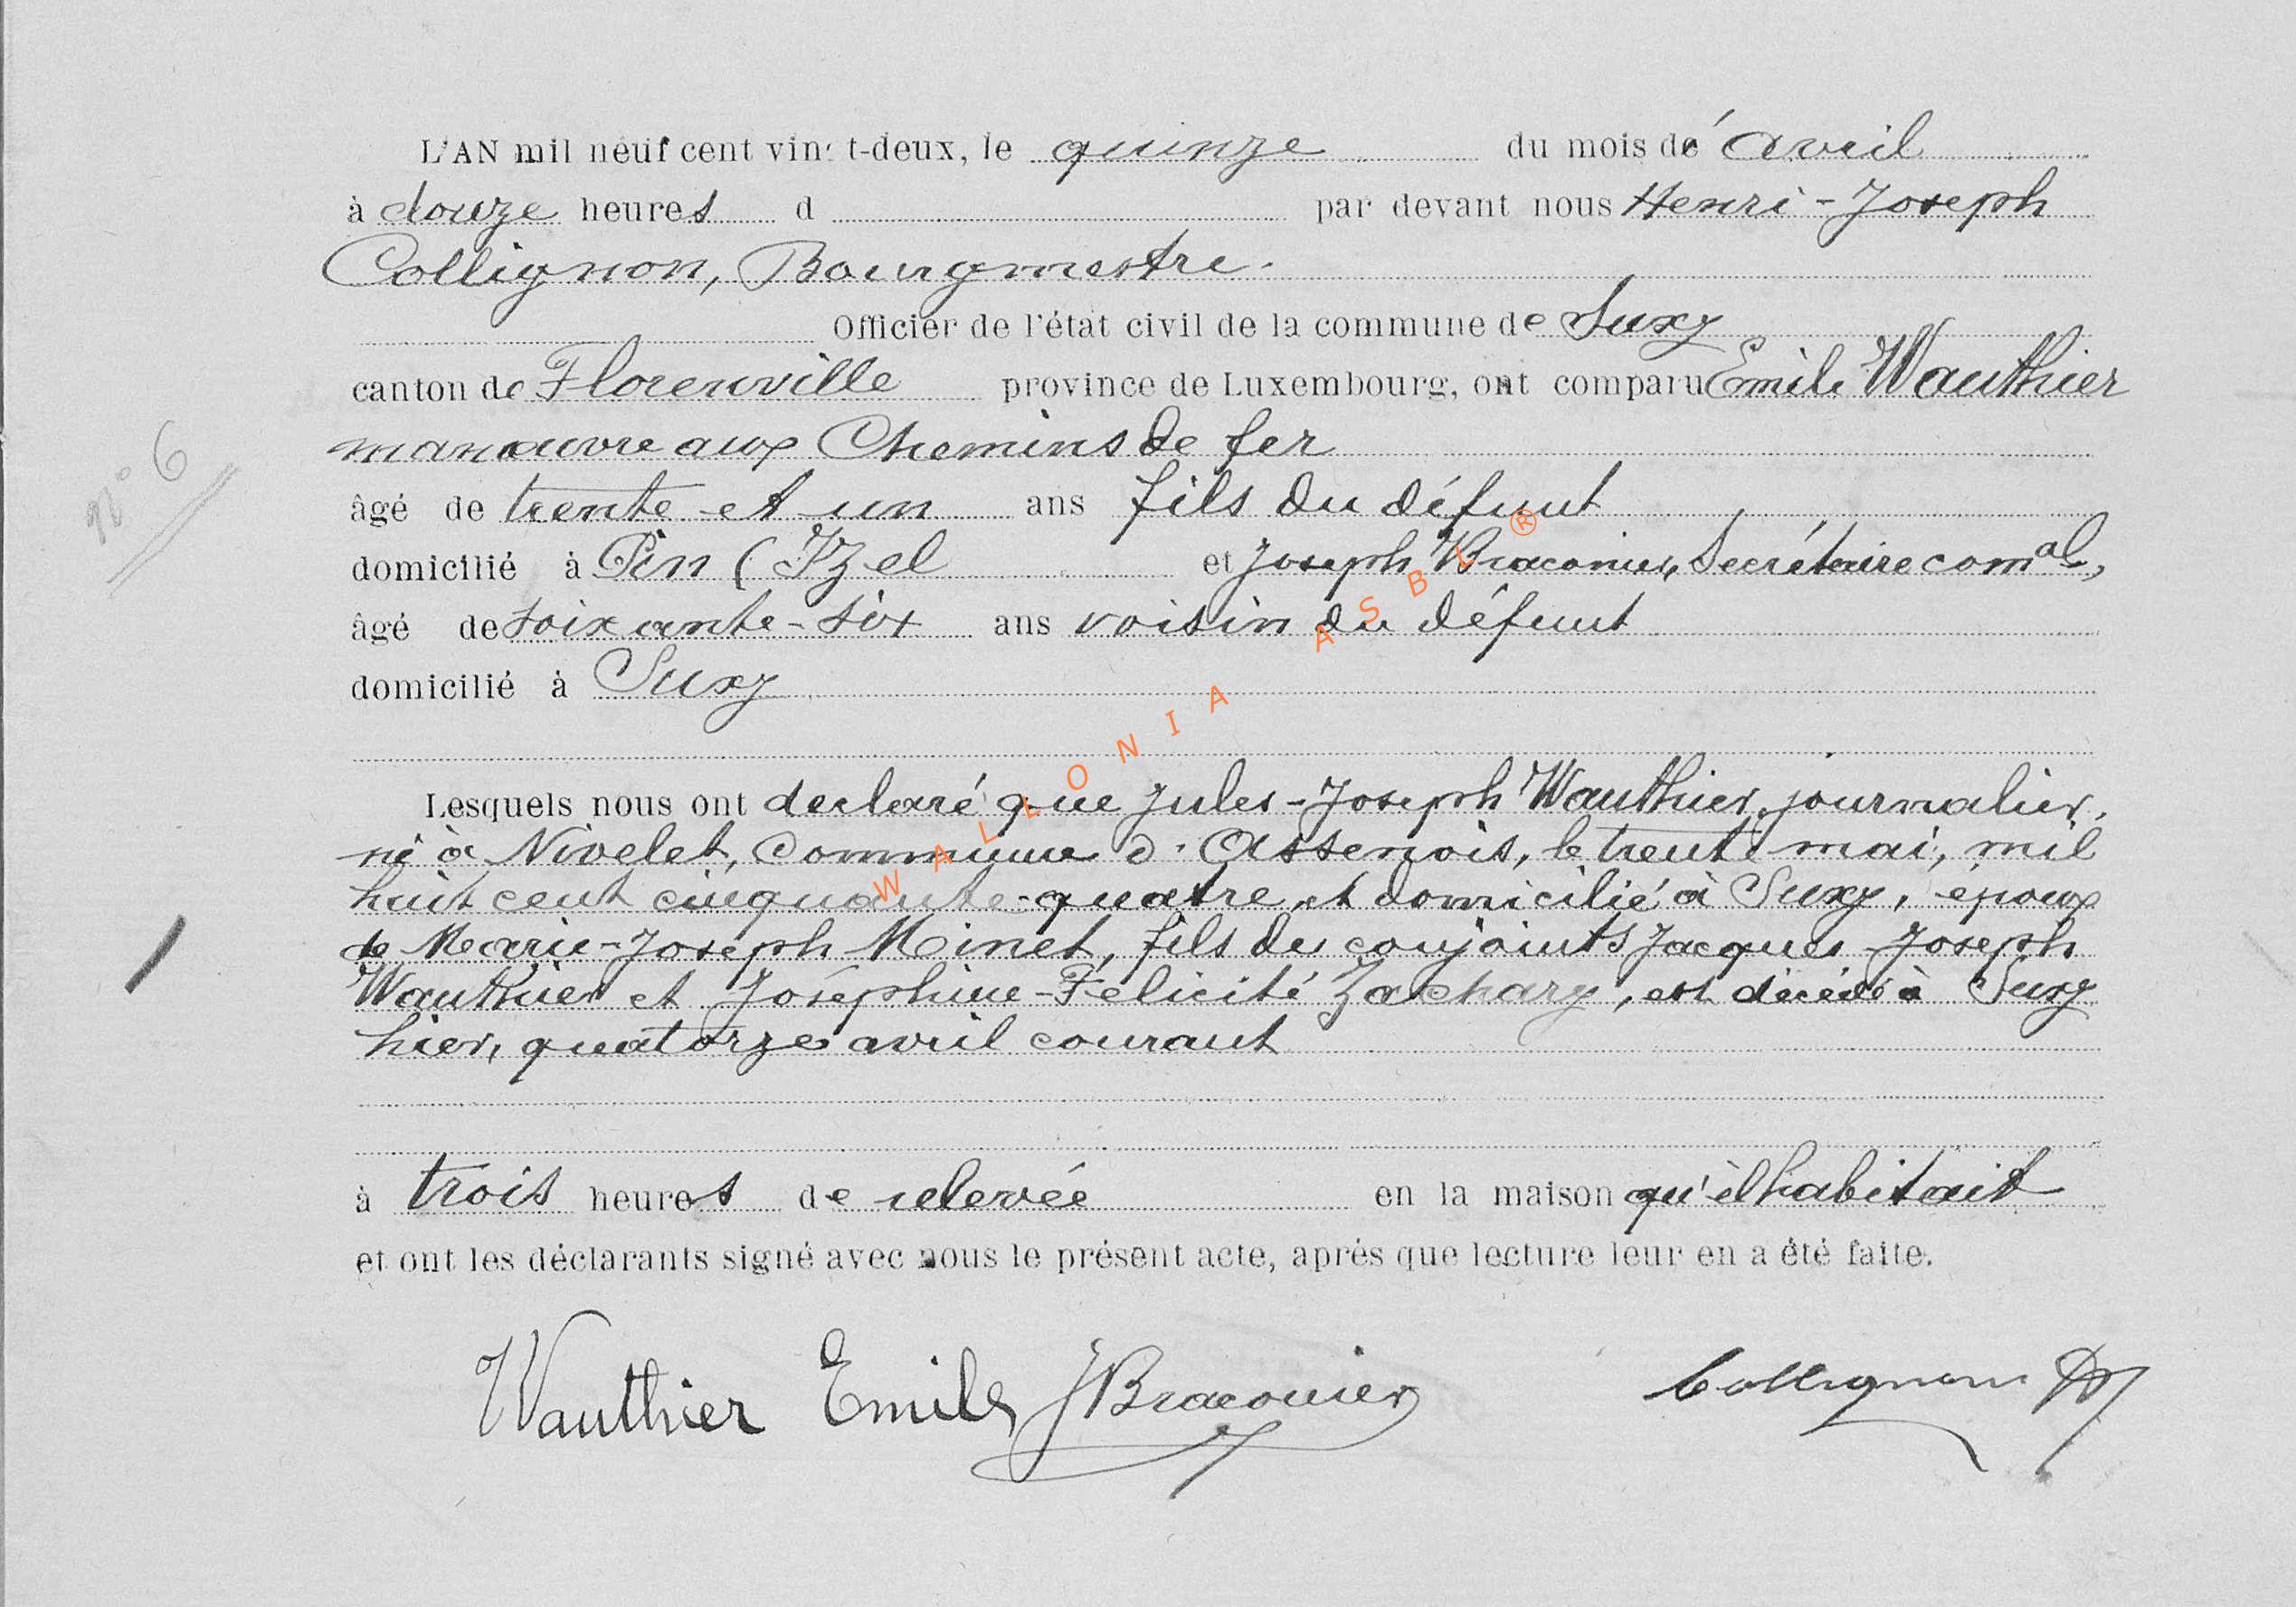 L'AN mil neuf cent vingt-deux, le quinze du mois de avril
à douze heures d par devant nous Henri-Joseph
Collignon, Bourgmestre.
Officier de l'état civil de la commune de Suxy
canton de Florenville province de Luxembourg, ont comparu Emile Wauthier
manœuvre aux Chemins de fer
âgé de trente et un ans fils du défunt
N° 6
domicilié à Pin (Izel et Joseph Braconier, Secrétaire comal,
âgé de soixante-six ans voisin du défunt
domicilié à Suxy
WALLONIA ASBL ®
Lesquels nous ont declaré que Jules-Joseph Wauthier, journalier,
né à Nivelet, commune d'Assenois, le trente mai, mil
huit cent cinquante-quatre et domicilié à Suxy, époux
de Marie-Joseph Minet, fils des conjoints Jacques Joseph
Wauthier et Joséphine-Félicité Zachary, est décédé à Suxy
hier, quatorze avril courant
à trois heures de relevée en la maison qu'il habitait
et ont les déclarants signé avec nous le présent acte, après que lecture leur en a été faite.
Wauthier Emile JBraconier Collignon